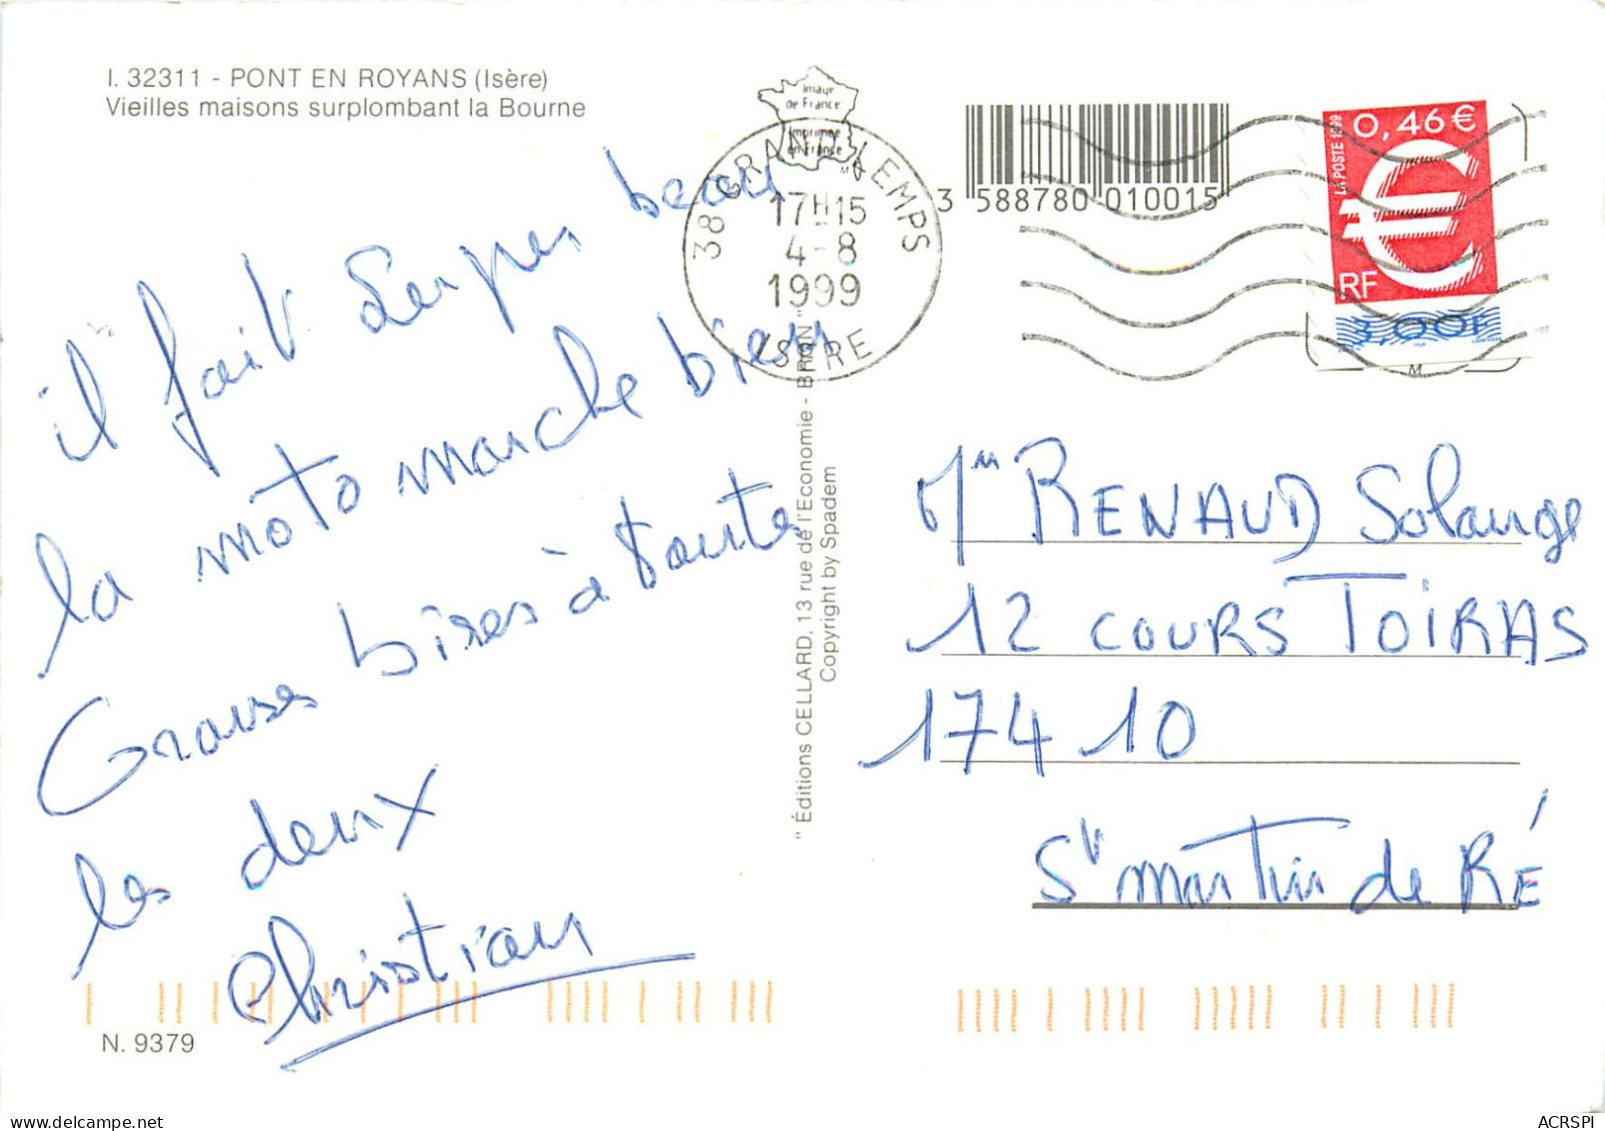 I. 32311 - PONT EN ROYANS (Isère)
Vieilles maisons surplombant la Bourne
Image
de France
Imprimée
en France
38 GRAND LEMPS
17H15
4-8
1999
ISERE
3 588780 010015
0,46€
LA POSTE 1999
RF
3,00F
il fait Super beau
la moto marche bien
Grosses bises à toutes
les deux
Christian
" Éditions CELLARD, 13 rue de l'Economie - BRON "
Copyright by Spadem
Mme RENAUD Solange
12 COURS TOIRAS
17410
St martin de RÉ
N. 9379
M
ACRSPI